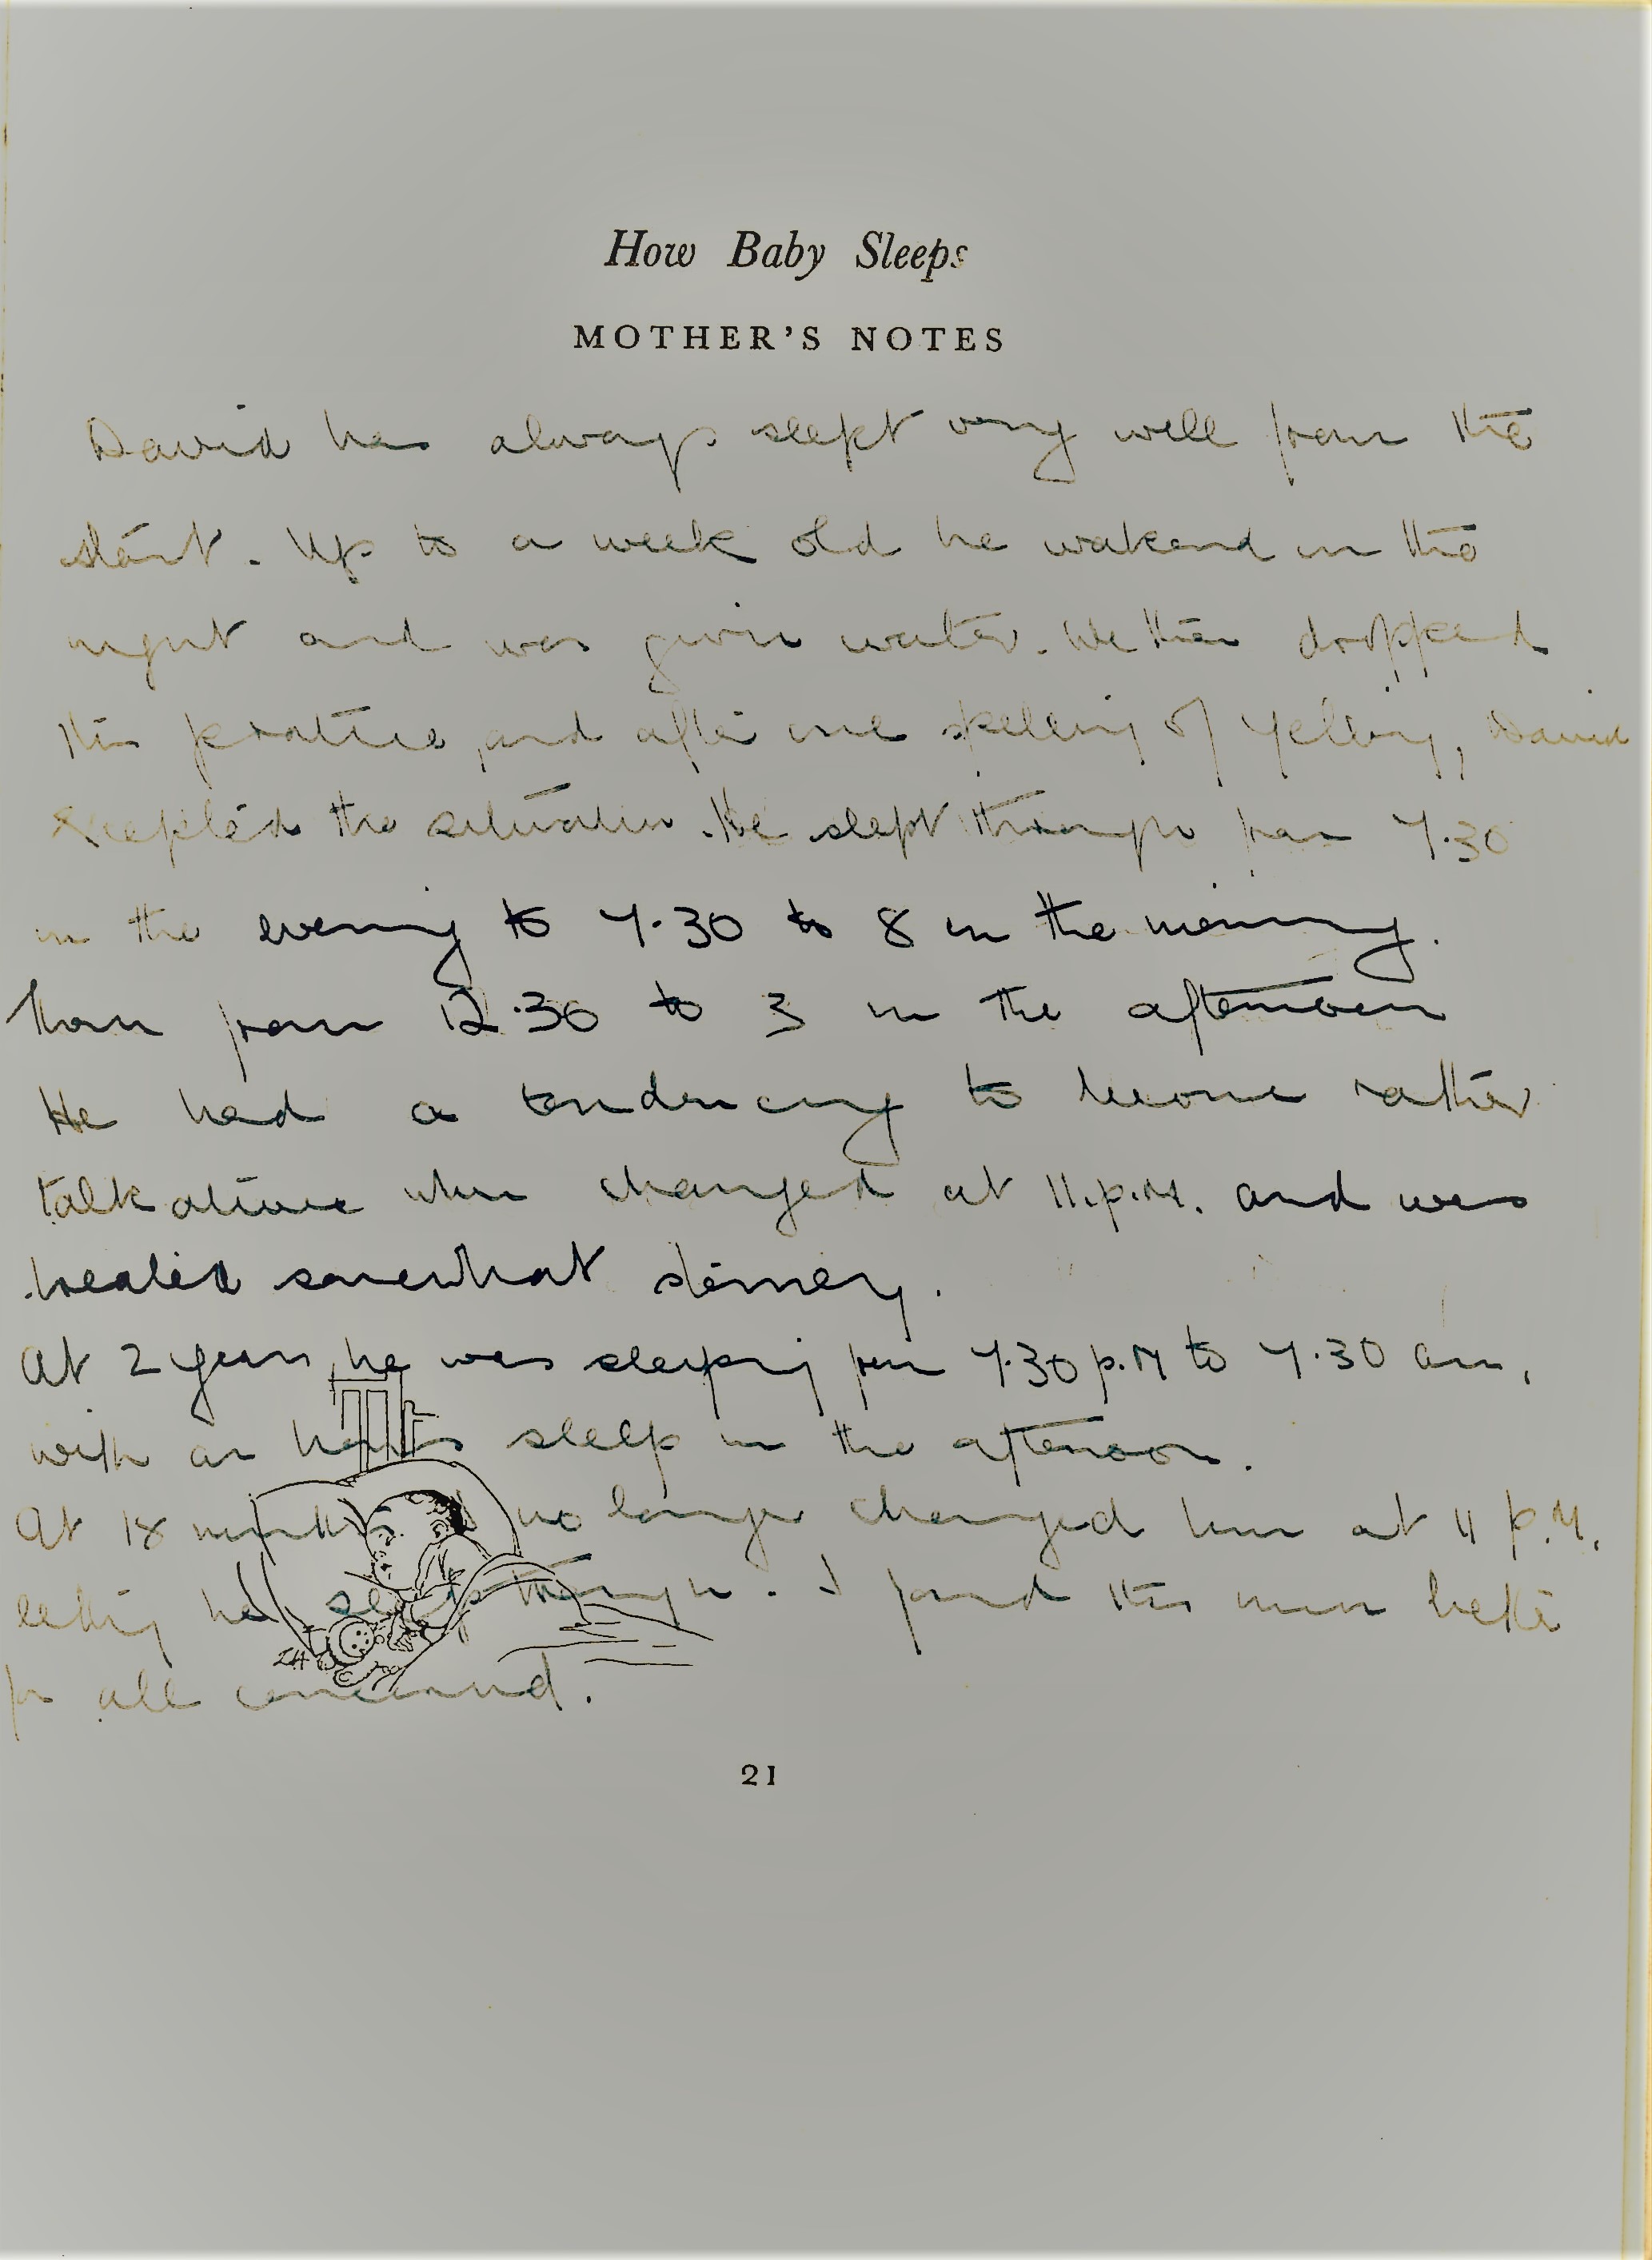 How Baby Sleeps
MOTHER'S NOTES
David has always slept very well from the
start. Up to a week old he wakened in the
night and was given water. We then dropped
this practice, and after one of yelling, David
accepted the situation. He slept through from 7.30
in the evening to 7.30 to 8 in the morning.
Then from 12.30 to 3 in the afternoon
He had a tendency to become rather
talkative when changed at 11.p.M. and was
treated somewhat sternly.
At 2 years, he was sleeping from 7.30 p.M to 7.30 am,
with an hour's sleep in the afternoon.
At 18 months no longer changed him at 11 p.M.
letting him sleep through. I found this much better
for all concerned.
21